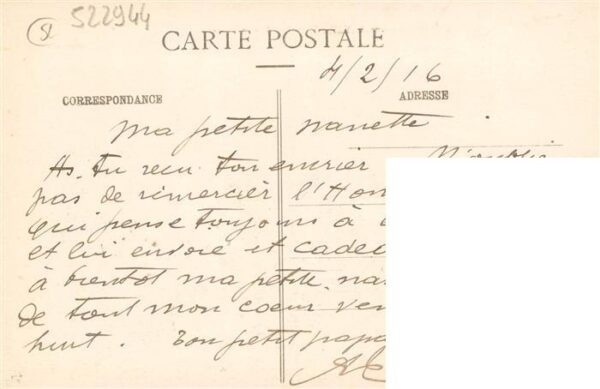 522944
CARTE POSTALE
4/2/16
CORRESPONDANCE
ADRESSE
Ma petite nanette
As-tu reçu ton encrier N'oublie
pas de remercier l'Hon
qui pense toujours à
et lui envoie et cadea
à bientot ma petite nan
de tout mon coeur
Ton petit papa